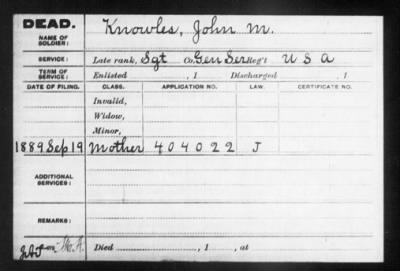 DEAD.
NAME OF SOLDIER: Knowles, John M.
SERVICE: Late rank, Sgt Co. Gen Ser Reg't U S A
TERM OF SERVICE: Enlisted , 1 Discharged , 1
DATE OF FILING. CLASS. APPLICATION NO. LAW. CERTIFICATE NO.
Invalid,
Widow,
Minor,
1889 Sep 19 Mother 404022 J
ADDITIONAL SERVICES:
REMARKS:
Died , 1 , at